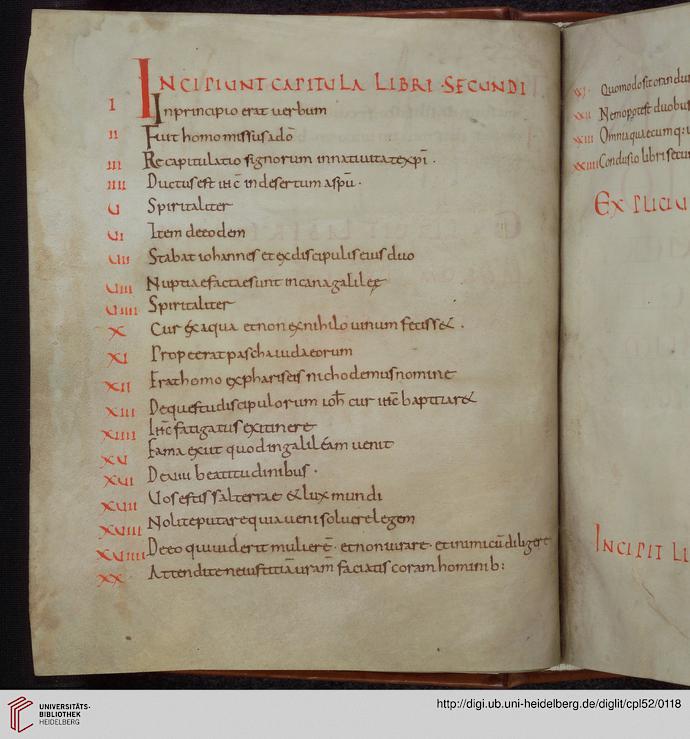 INCIPIUNT CAPITULA LIBRI · SECUNDI
I Inprincipio erat uerbum
II Fuit homo missus adō
III Recapitulatio signorum innatiuitatexp̄i .
IIII Ductus est ihc̄ indesertum aspū ·
U Spiritaliter
UI Item deeodem
UII Stabat iohannes et exdiscipulis eius duo
UIII Nuptiaefactaesunt incanagalileę
UIIII Spiritaliter
X Cur exaqua etnon exnihilo uinum fecisset .
XI Prope erat pascha iudaeorum
XII Erat homo exphariseis nichodemus nomine
XIII De questu discipulorum ioh̄ cur ihc̄ baptizaret
XIIII Ihc̄ fatigatus exitinere
XU Fama exiit quod ingalileam uenit
XUI De uiii beatitudinibus ·
XUII Uos estis sal terrae et lux mundi
XUIII Nolite putare quia ueni soluere legem
XUIIII Deeo qui uiderit mulierē · et non iurare · et inimicū diligere
XX Attendite ne iustitiā uram̄ faciatis coram hominib:
XXI · Quomodo sit orandum
XXII Nemo potest duobus
XXIII Omnia quaecumq:
XXIIII Conclusio libri secun
EXPLICIU
INCIPIT LI
UNIVERSITÄTS-
BIBLIOTHEK
HEIDELBERG
http://digi.ub.uni-heidelberg.de/diglit/cpl52/0118